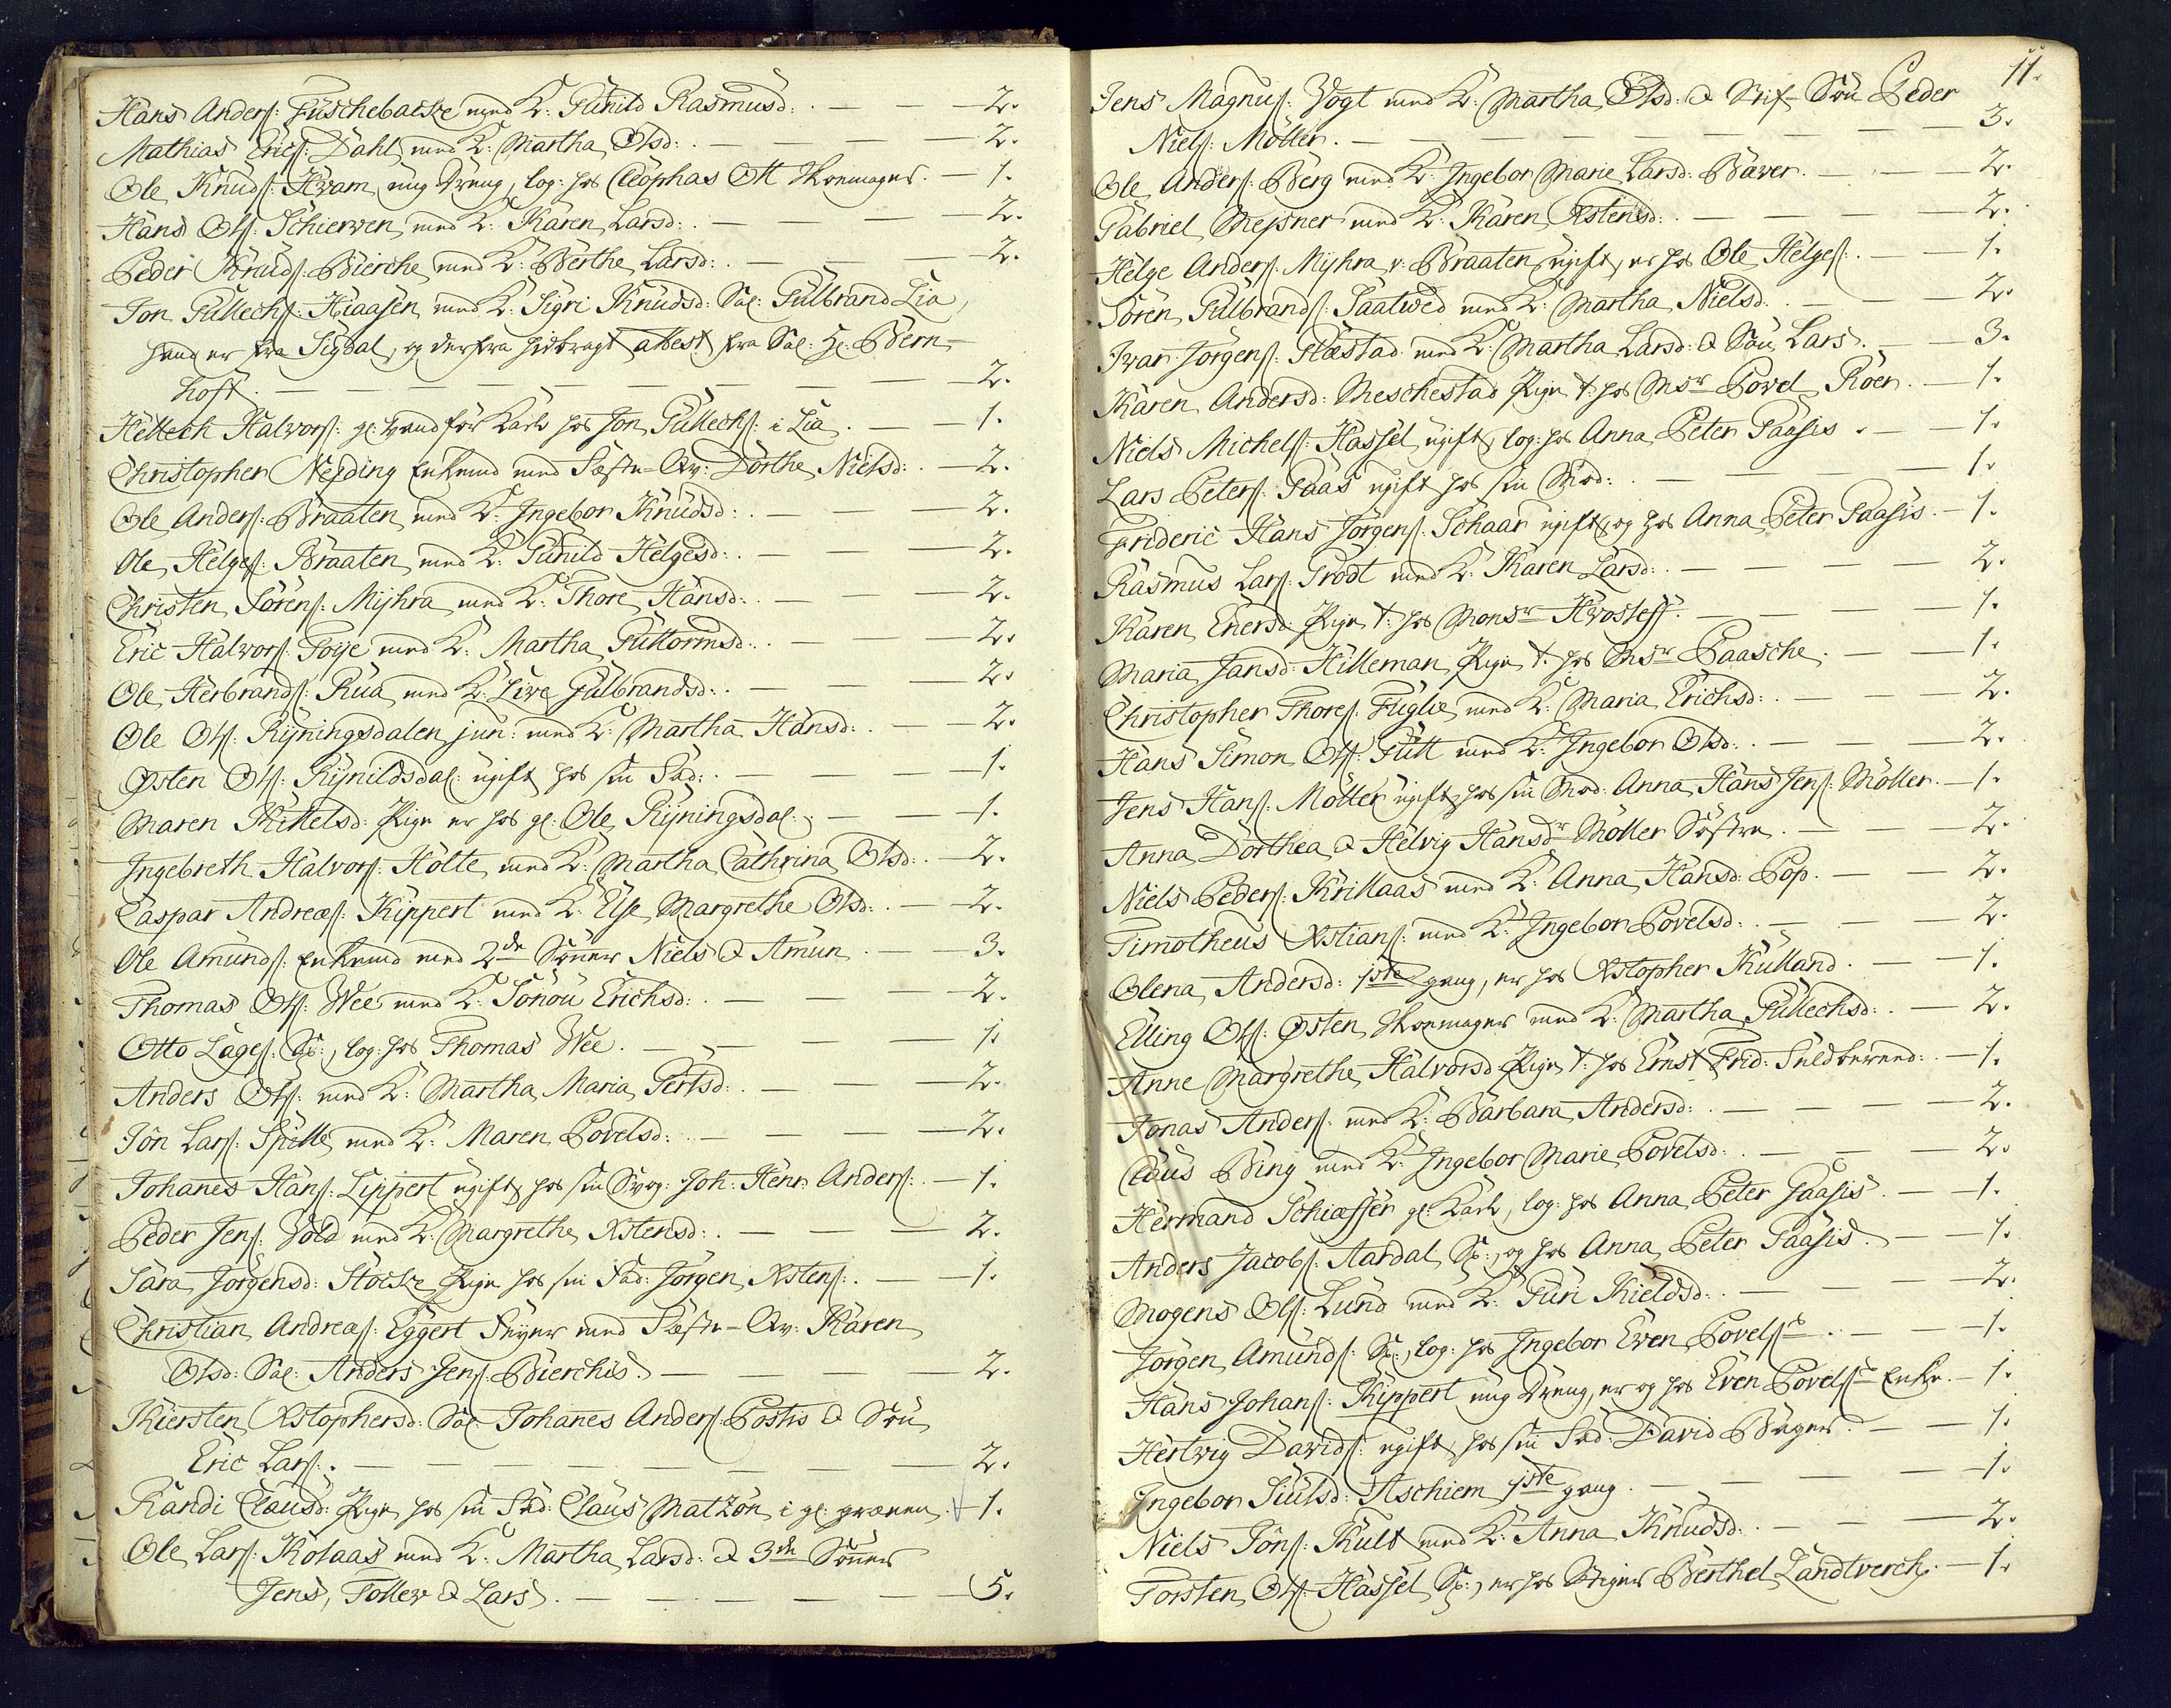 Hans Anders: Fuschebacke med K: Gunild Rasmusd: . — — 2.
Mathias Erics: Dahl med K: Martha Olsd: . — — — 2.
Ole Knuds: Hvam, ung dreng, log: hos Cleophas Ott Skoemager. — 1.
Hans Ols: Schierven med K: Karen Larsd: . — — — 2.
Peder Knuds: Bierche med K: Berthe Larsd: . — — — 2.
Jon Gullechs: Hiaasen med K: Sigri Knudsd: Sal: Gulbrand Lia,
hand er fra Sigdal, og derfra hidbragt attest fra Sal: Hr: Bern-
hoft. — — — — — — — 2.
Hellech Halvors: gl: vandför Karl hos Jon Gullechs: i Lia. — — 1.
Christopher Nejding Enkemd med Fæste-Qv: Dorthe Nielsd: . — 2.
Ole Anders: Braaten med K: Ingebor Knudsd: . — — — 2.
Ole Helges: Braaten med K: Gunild Helgesd: . — — — 2.
Christen Sörens: Mÿhra med K: Thore Hansd: . — — — 2.
Eric Halvors: Foÿe med K: Martha Guttormsd: . — — 2.
Ole Herbrands: Rua med K: Live Gulbrandsd: . — — — 2.
Ole Ols: Rÿningsdalen jun: med K: Martha Hansd: . — — 2.
Østen Ols: Rÿnildsdal: ugift hos sin Fad: . — — — 1.
Maren Kittelsd: Pige er hos gl: Ole Rÿningsdal. — — — 1.
Ingebreth Halvors: Holte med K: Martha Cathrina Olsd: . — 2.
Caspar Andreæs: Kippert med K: Else Margrethe Olsd: . — 2.
Ole Amunds: Enkemd med 2de Sönner Niels & Amun. — — 3.
Thomas Ols: Wee med K: Sönou Erichsd: . — — — 2.
Otto Lages: Sk:, log: hos Thomas Wee. — — — 1.
Anders Ols: med K: Martha Maria Gertsd: . — — — 2.
Jön Lars: Spille med K: Maren Povelsd: . — — — 2.
Johanes Hans: Lippert ugift hos sin Svog: Joh: Henr: Anders: . — 1.
Peder Jens: Vold med K: Margrethe Xstensd: . — — — 2.
Sara Jörgensd: Stocke Pige hos sin Fad: Jörgen Xstens: . — — 1.
Christian Andreas: Eggert med Fæste-Qv: Karen
Olsd: Sal: Anders Jens: Bierchis. — — — — 2.
Kiersten Xstophersd: Sal: Johanes Anders: Postis & Sön
Eric Lars: . — — — — — — — 2.
Randi Clausd: Pige hos sin Fad: Claus Matzön i gl: grænen. — 1.
Ole Lars: Kolaas med K: Martha Larsd: & 3de Sönner
Jens, Tollew & Lars. — — — — — 5.
11.
Jens Magnus: Vogt med K: Martha Olsd: & Stif-Sön Peder
Niels: Möller. — — — — — — — 3.
Ole Anders: Berg med K: Ingebor Marie Larsd: Bæver. — — 2.
Gabriel Mejsner med K: Karen Xstensd: . — — — 2.
Helge Anders: Mÿhra v: Braaten, ugift, er hos Ole Helges: . — 1.
Sören Gulbrands: Saatved med K: Martha Nielsd. — — — 2.
Ivar Jörgens: Flæstad med K: Martha Larsd: & Sön Lars. — — 3.
Karen Andersd: Meschestad Pige t: hos Msr Povel Röer. — 1.
Niels Michels: Hassel, ugift, log: hos Anna Peter Paasis. — — 1.
Lars Peters: Paas ugift hos sin Mod: . — — — — 1.
Frideric Hans Jörgens: Schaar ugift, og hos Anna Peter Paasis. — 1.
Rasmus Lars: Trodt med K: Karen Larsd: . — — — 2.
Karen Enersd: Pige t: hos Monsr Hvosleff. — — — 1.
Maria Jansd: Hilleman, Pige t: hos Msr Paasche. — — 1.
Christopher Thores: Fuglie med K: Maria Erichsd: . — — 2.
Hans Simon Ols: Gutt med K: Ingebor Olsd: . — — — 2.
Jens Hans: Möller ugift, hos sin Mod: Anna Hans Jens: Möller. — 1.
Anna Dorthea & Helvig Hansdr Möller Söstre. — — 2.
Niels Peders: Krillaas med K: Anna Hansd: Pop. — — 2.
Timotheus Xstians: med K: Ingebor Povelsd: . — — — 2.
Olena Andersd: 1ste gang, er hos Xstopher Kulland. — — 1.
Elling Ols: Østen Skoemager med K: Martha Gullechsd: . — 2.
Anne Margrethe Halvorsd: Pige t: hos Ernst Frid: — 1.
Jonas Anders: med K: Barbara Andersd: . — — — 2.
Claus Bing med K: Ingebor Marie Povelsd: . — — — 2.
Hermand Schiæffer gl: Karl, log: hos Anna Peter Paasis. — 1.
Anders Jacobs: Aardal Sk:, og hos Anna Peter Paasis. — — 1.
Mogens Ols: Lund med K: Guri Kieldsd: . — — — 2.
Jörgen Amunds: Sk:, log: hos Ingebor Even Povels: . — — 1.
Hans Johans: Kippert ung dreng, er og hos Even Povels: Enke. — 1.
Hertvig Davids: ugift, hos sin Fad: David Bager. — — 1.
Ingebor Siulsd: Aschiem 1ste gang. — — — — 1.
Niels Jöns: Kult med K: Anna Knudsd: . — — — 2.
Torsten Ols: Hassel Sk:, er hos Stiger Berthel Landtverch. — 1.